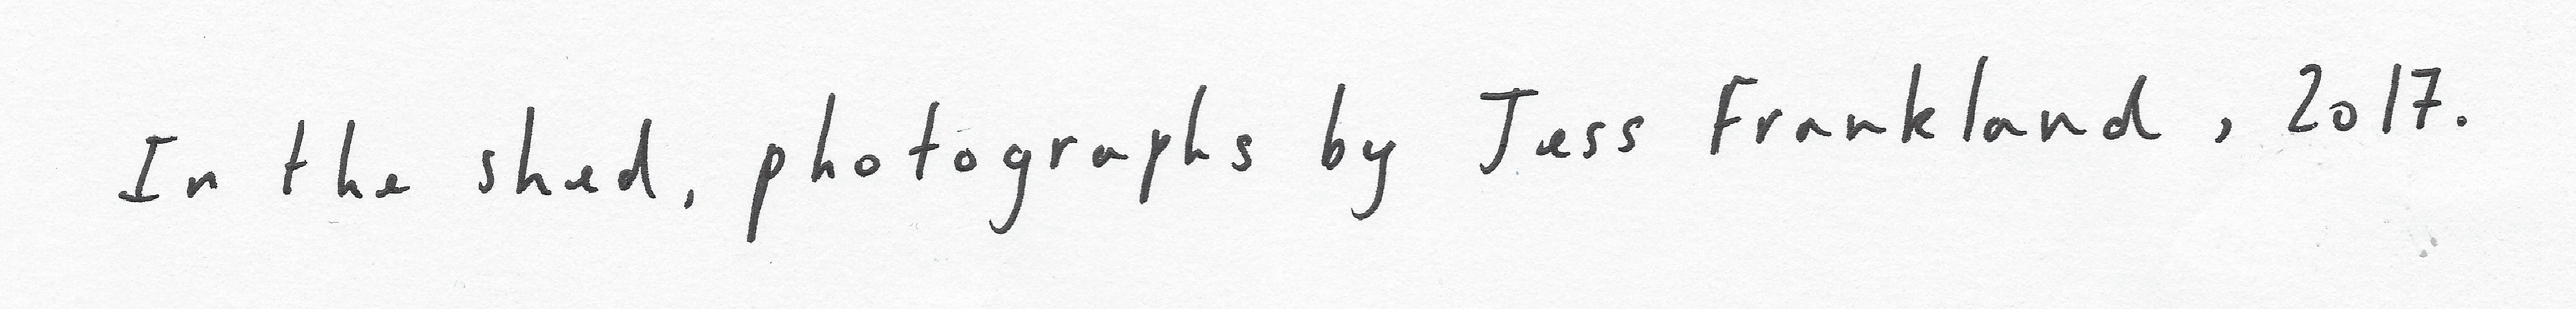 In the shed, photographs by Jess Frankland, 2017.